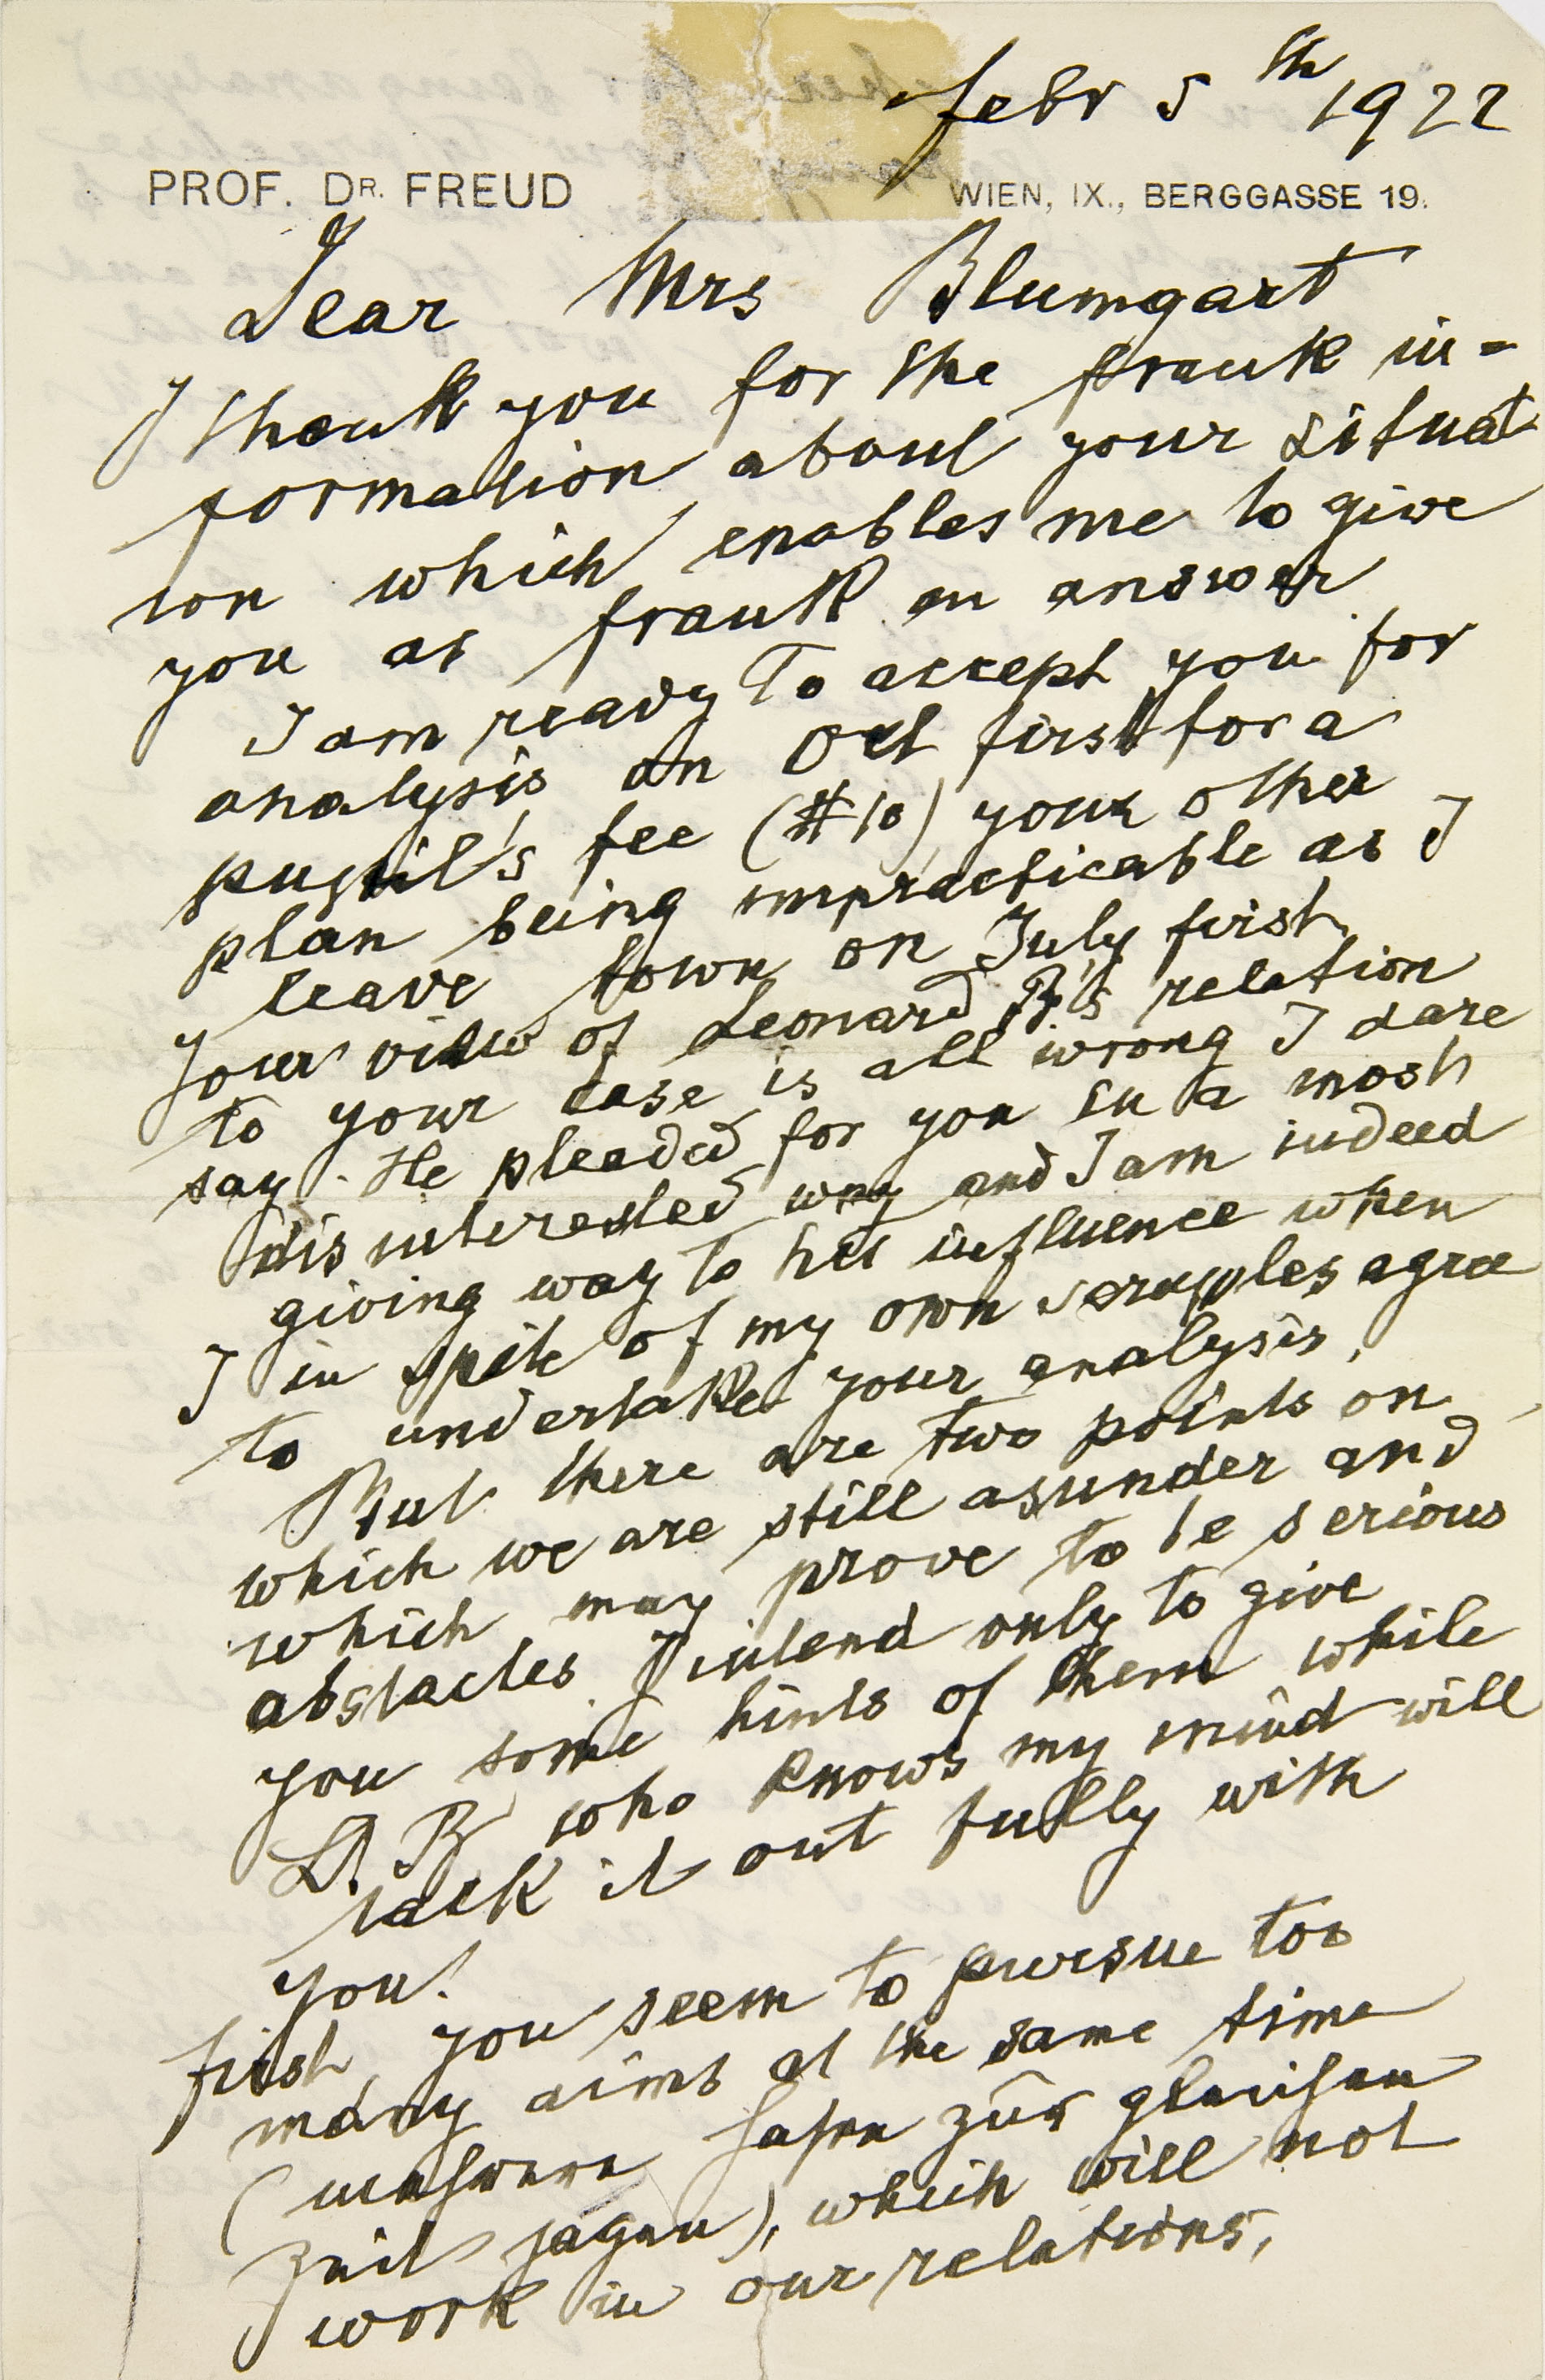 Febr 5th 1922
PROF. DR. FREUD WIEN, IX., BERGGASSE 19.
Dear Mrs Blumgart
I thank you for the frank in=
formation about your situat
ion which enables me to give
you as frank an answer.
I am ready to accept you for
analysis on Oct first for a
pupil's fee ($10) your other
plan being impracticable as I
leave town on July first.
Your view of Leonard Bl's relation
to your case is all wrong I dare
say. He pleaded for you in a most
disinterested way and I am indeed
giving way to his influence when
I in spite of my own scruples agree
to undertake your analysis.
But there are two points on
which we are still asunder and
which may prove to be serious
obstacles. I intend only to give
you some hints of them while
L. B. who knows my mind will
talk it out fully with
you.
First, you seem to pursue too
many aims at the same time
(mehrere Hasen zur gleichen
Zeit jagen), which will not
work in our relations,